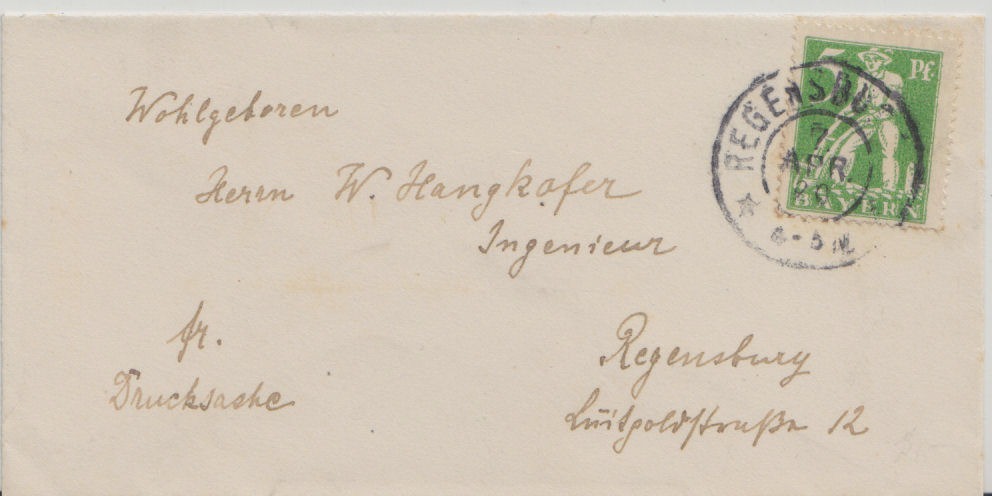 5 Pf
BAYERN
REGENSBU
7
APR
20
4-5 N
Wohlgeboren
Herrn W. Hangkofer
Ingenieur
fr.
Drucksache
Regensburg
Luitpoldstraße 12